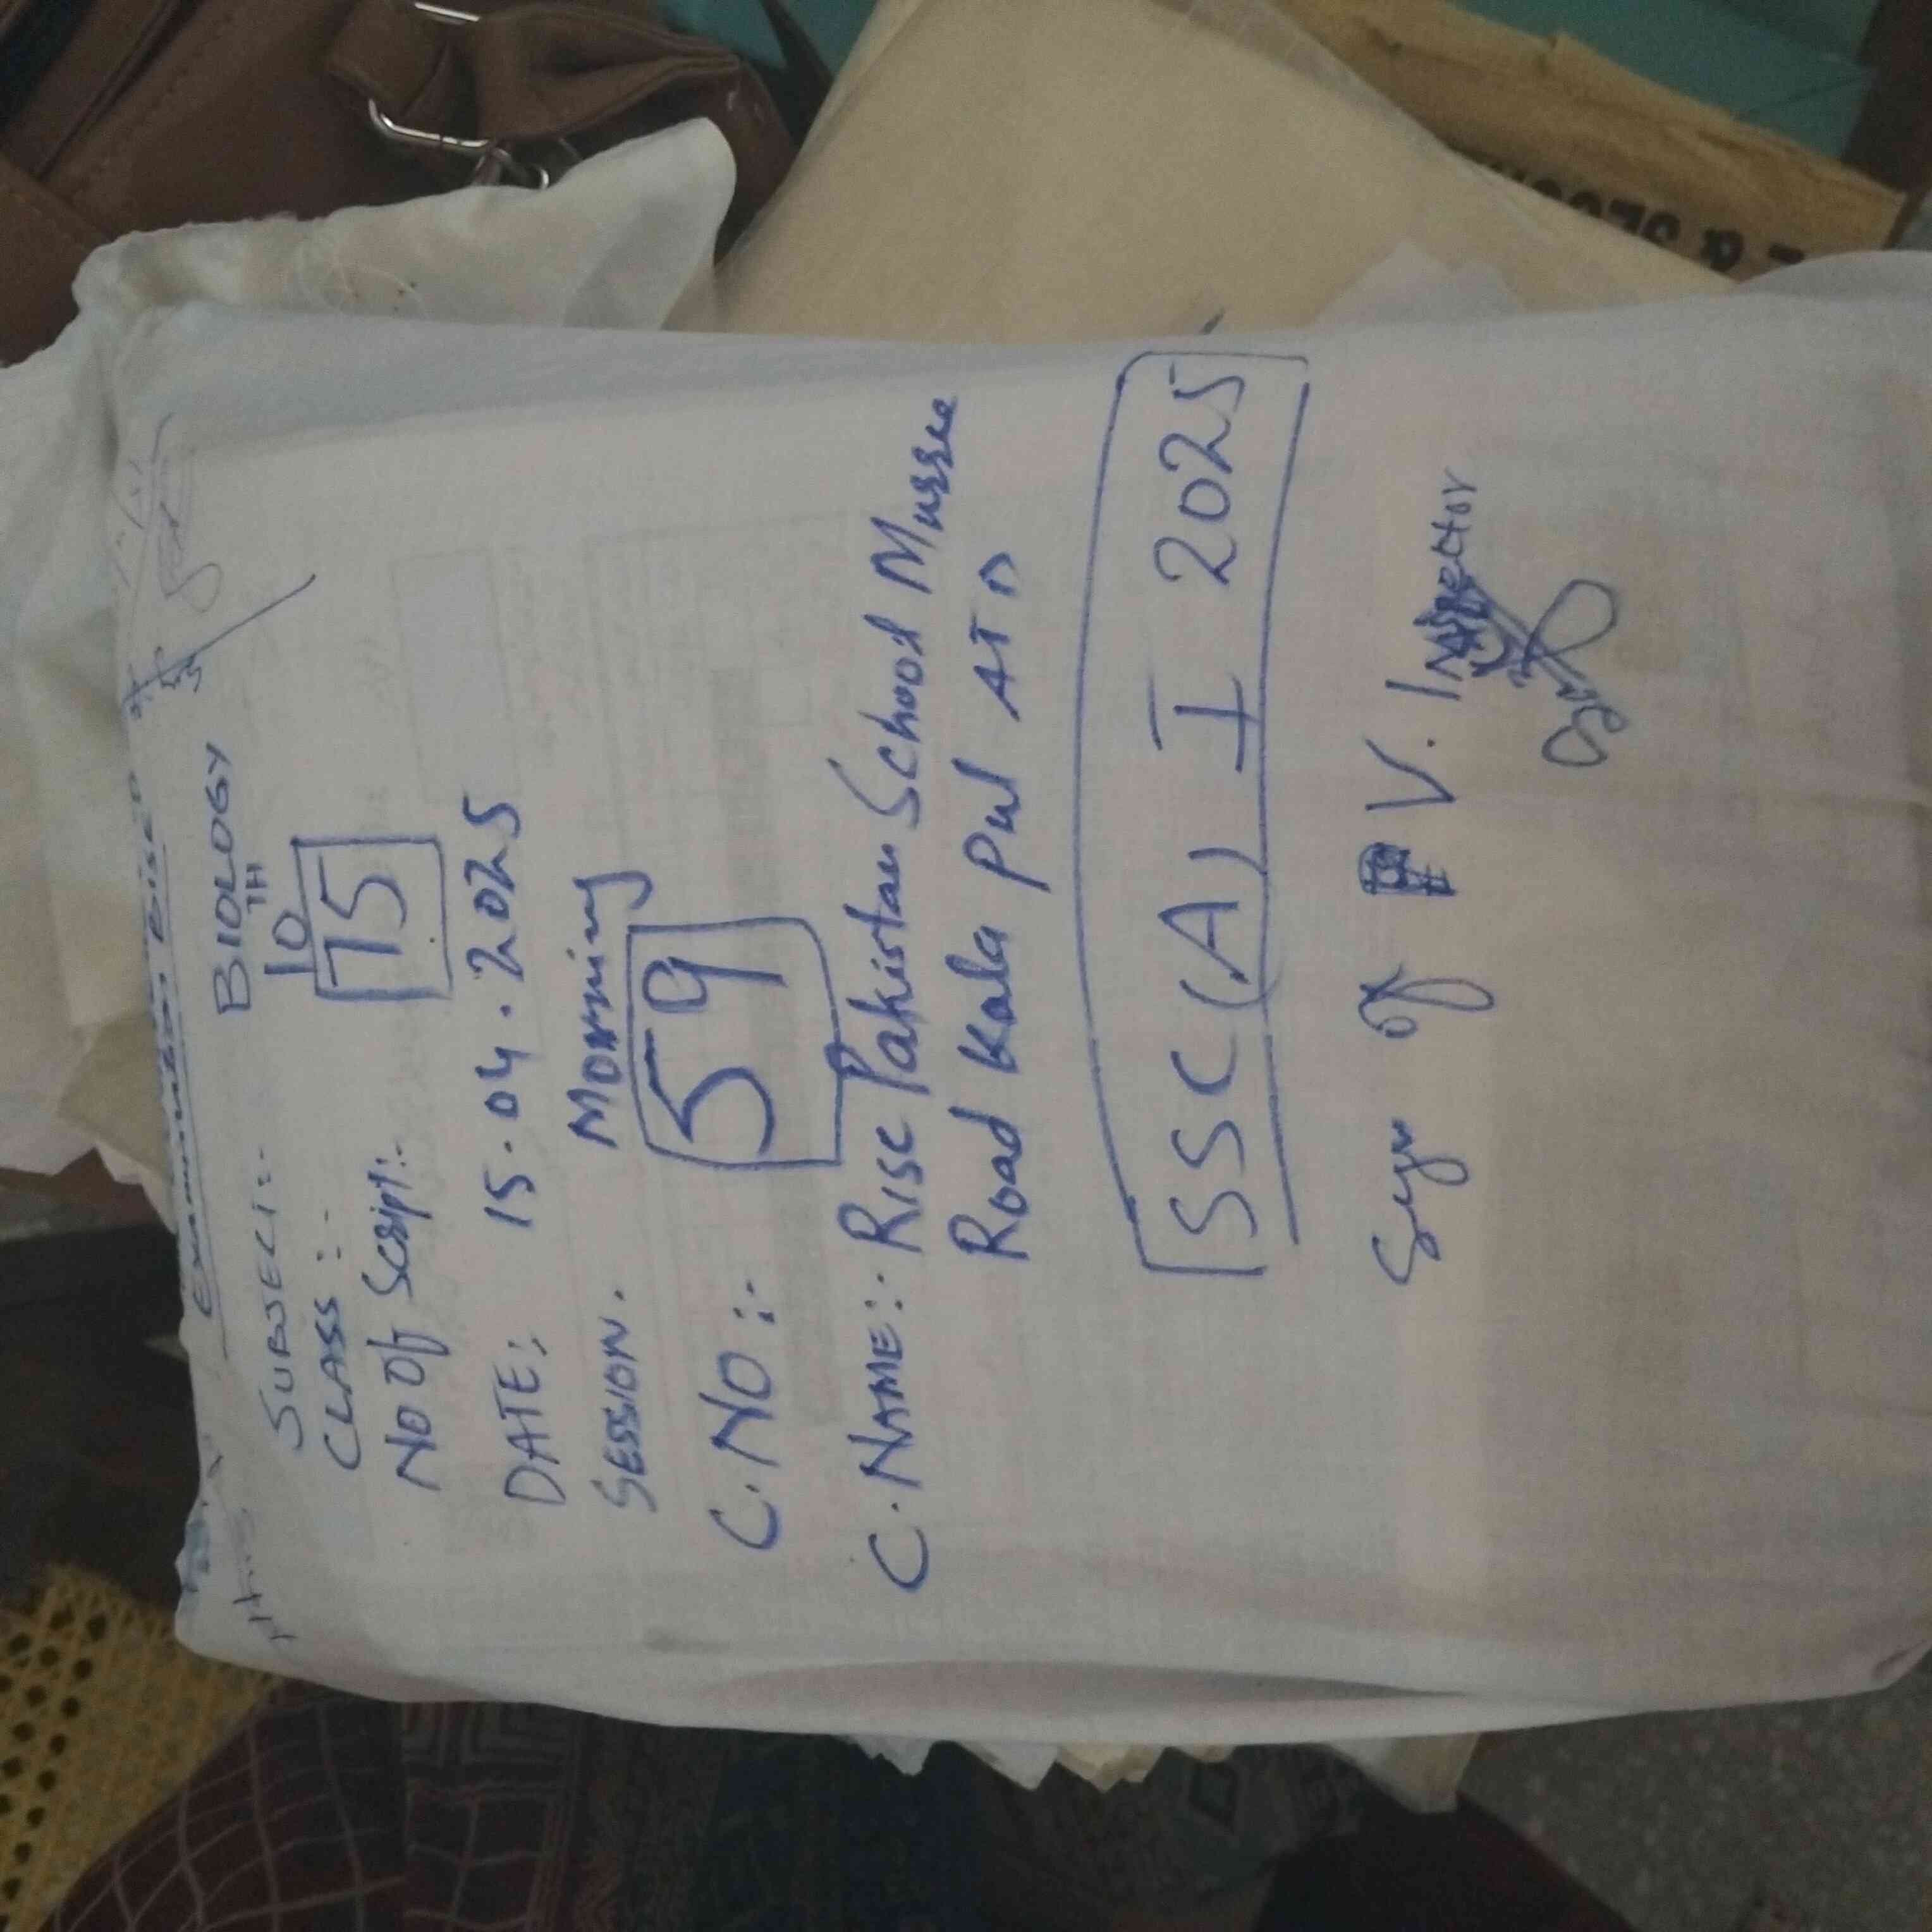 Examination BISE
SUBJECT:- BIOLOGY
CLASS:- 10TH
No Of Script:- 15
DATE:. 15.04.2025
SESSION. Morning
C.NO:- 59
C.NAME:- RISE Pakistan School Murree
Road Kala Pul ATD
SSC(A) I 2025
Sign of V. Inspector